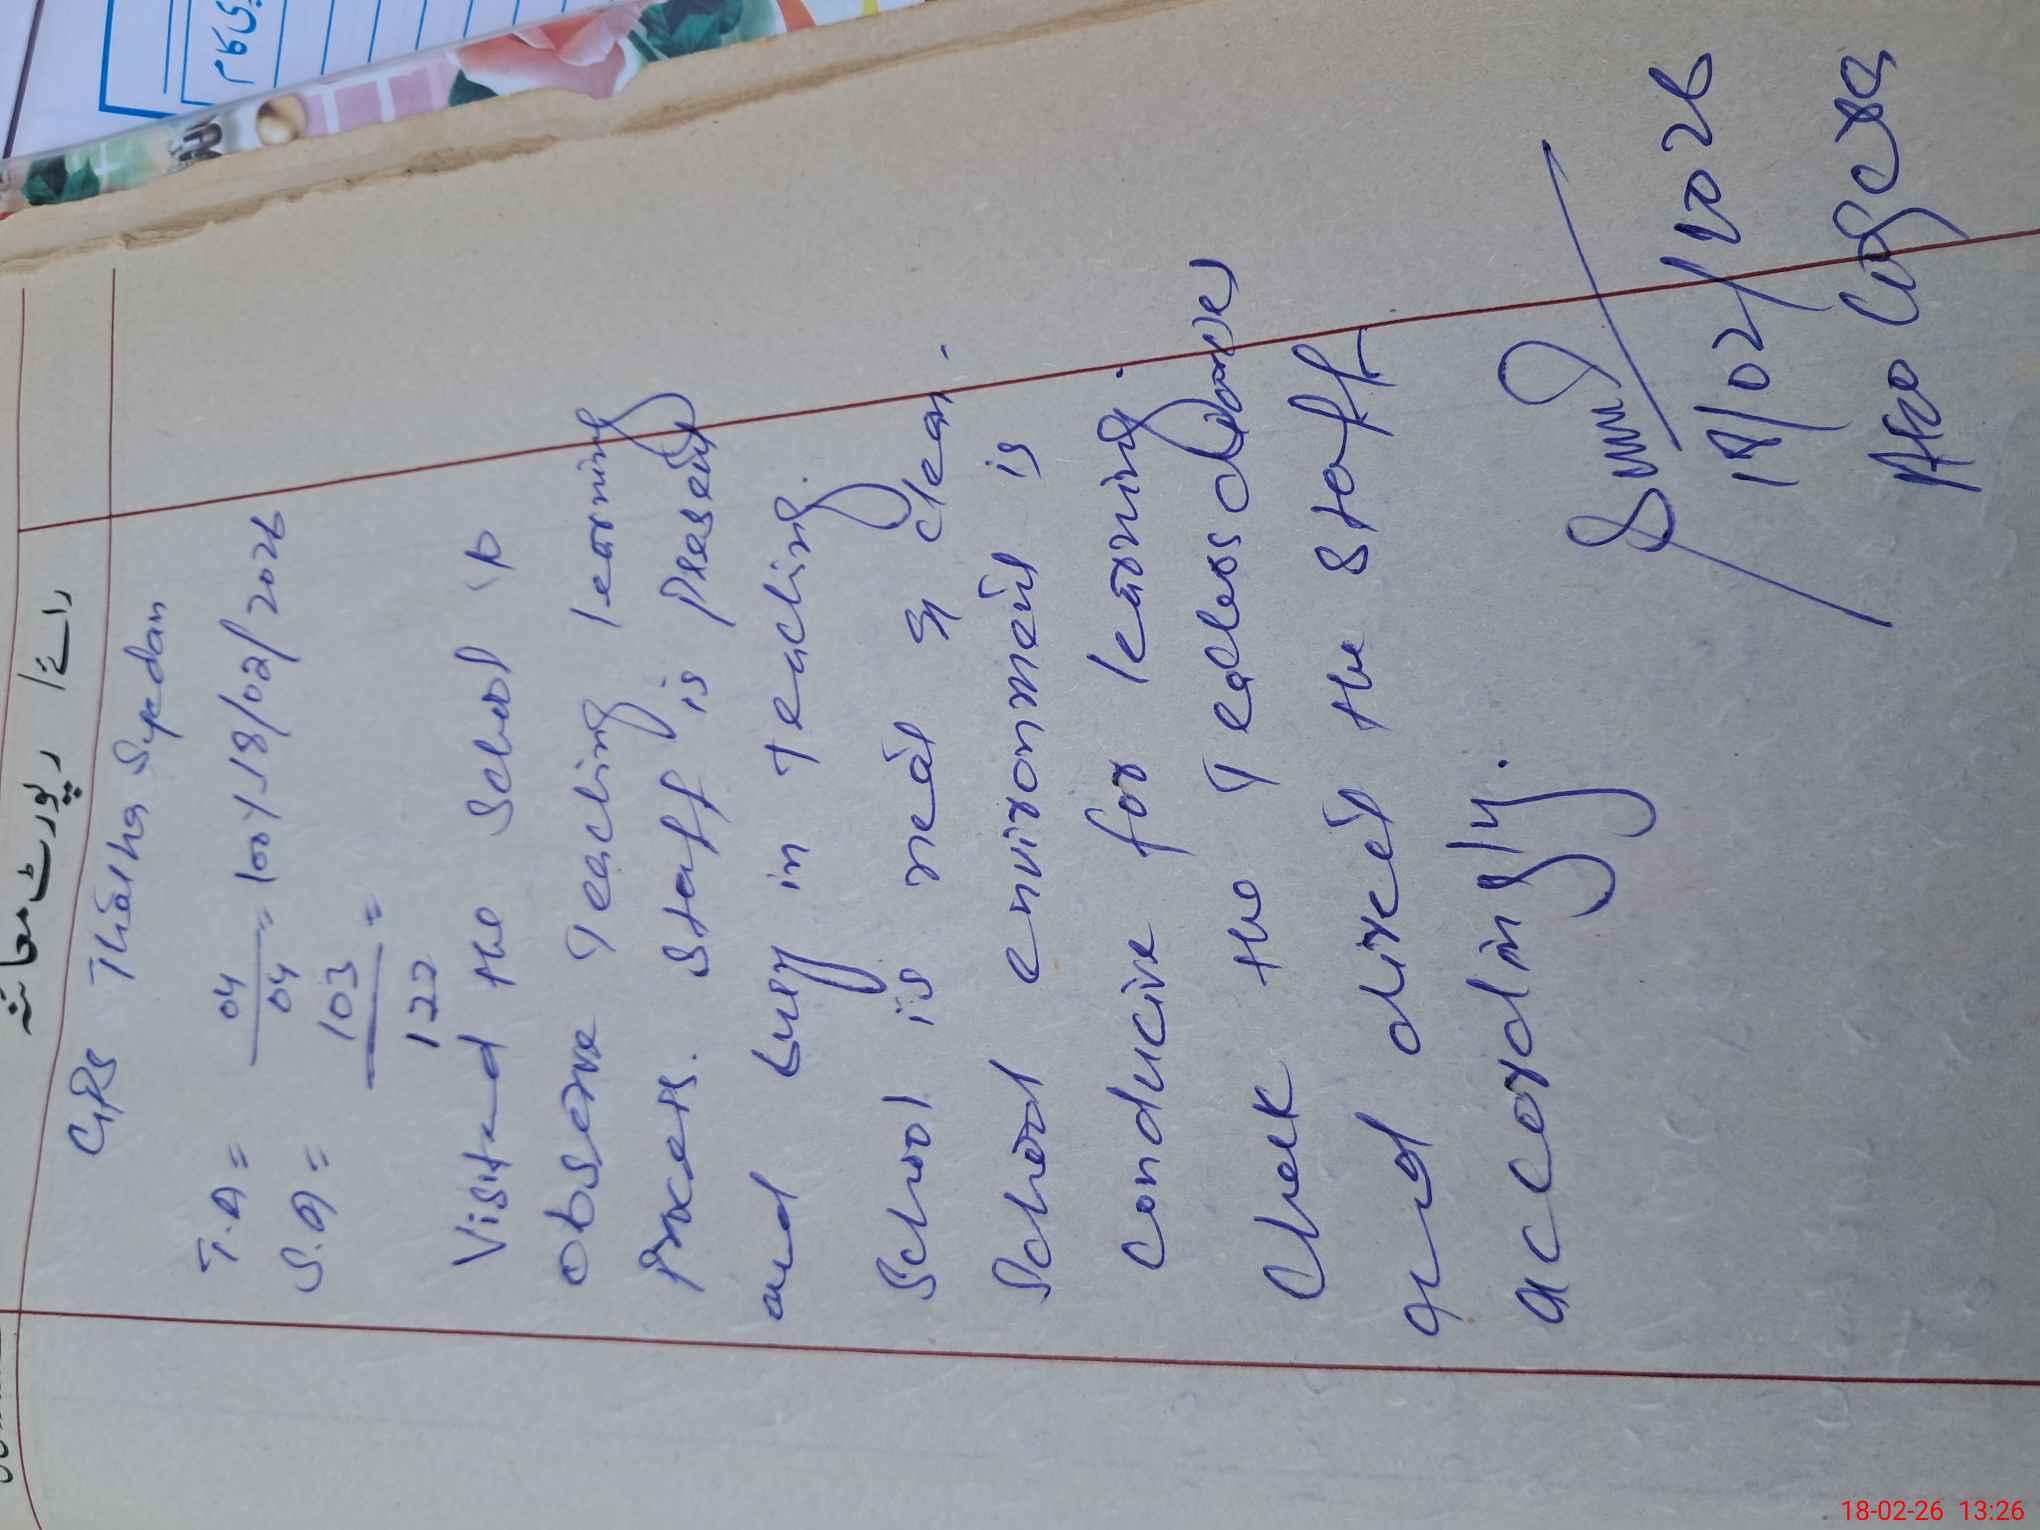 رائے / رپورٹ معائنہ
GPS Thatha Syedan
T.A = 04/04 = 100% 18/02/2026
S.A = 103/122 =
Visited the School to
observe Teaching learning
Process. Staff is Present
and busy in Teaching.
School is neat & clean.
School environment is
conducive for learning.
Check the Teachers diaries
and direct the staff
accordingly.
18/02/2026
18-02-26 13:26